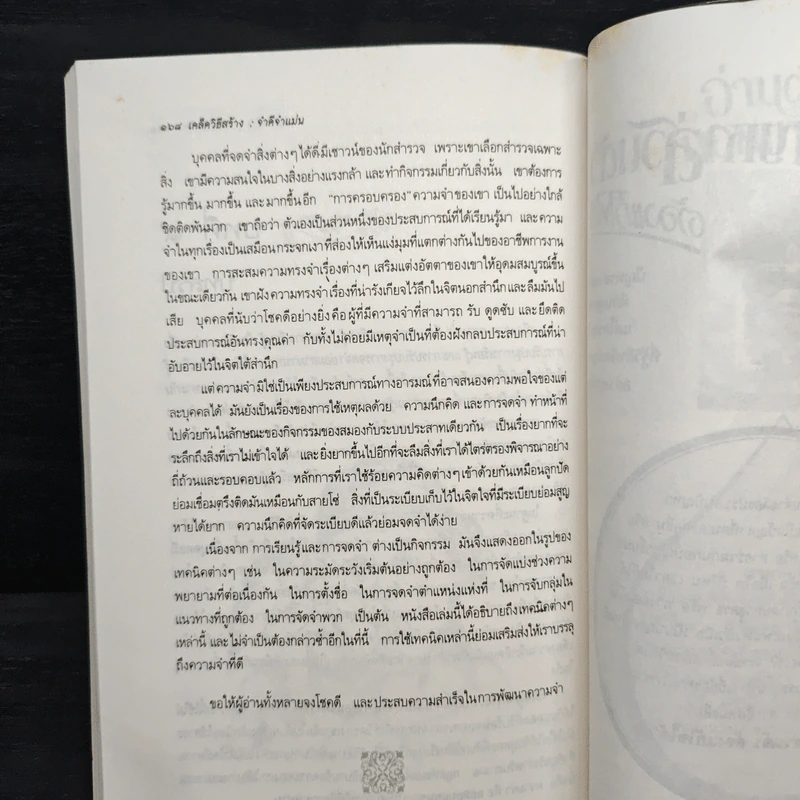 ๑๖๘ เคล็ดวิธีสร้าง : จำดีจำแม่น
บุคคลที่จดจำสิ่งต่างๆ ได้ดี มีเชาวน์ของนักสำรวจ เพราะเขาเลือกสำรวจเฉพาะ
สิ่ง เขามีความสนใจในบางสิ่งอย่างแรงกล้า และทำกิจกรรมเกี่ยวกับสิ่งนั้น เขาต้องการ
รู้มากขึ้น มากขึ้น และมากขึ้นอีก "การครอบครอง" ความจำของเขา เป็นไปอย่างใกล้
ชิดติดพันมาก เขาถือว่า ตัวเองเป็นส่วนหนึ่งของประสบการณ์ที่ได้เรียนรู้มา และความ
จำในทุกเรื่องเป็นเสมือนกระจกเงาที่ส่องให้เห็นแง่มุมที่แตกต่างกันไปของอาชีพการงาน
ของเขา การสะสมความทรงจำเรื่องต่างๆ เสริมแต่งอัตตาของเขาให้อุดมสมบูรณ์ขึ้น
ในขณะเดียวกัน เขาฝังความทรงจำเรื่องที่น่ารังเกียจไว้ลึกในจิตนอกสำนึกและลืมมันไป
เสีย บุคคลที่นับว่าโชคดีอย่างยิ่ง คือ ผู้ที่มีความจำที่สามารถ รับ ดูดซับ และยึดติด
ประสบการณ์อันทรงคุณค่า กับทั้งไม่ค่อยมีเหตุจำเป็นที่ต้องฝังกลบประสบการณ์ที่น่า
อับอายไว้ในจิตใต้สำนึก
แต่ความจำมิใช่เป็นเพียงประสบการณ์ทางอารมณ์ที่อาจสนองความพอใจของแต่
ละบุคคลได้ มันยังเป็นเรื่องของการใช้เหตุผลด้วย ความนึกคิด และการจดจำ ทำหน้าที่
ไปด้วยกันในลักษณะของกิจกรรมของสมองกับระบบประสาทเดียวกัน เป็นเรื่องยากที่จะ
ระลึกถึงสิ่งที่เราไม่เข้าใจได้ และยิ่งยากขึ้นไปอีกที่จะลืมสิ่งที่เราได้ไตร่ตรองพิจารณาอย่าง
ถี่ถ้วนและรอบคอบแล้ว หลักการที่เราใช้ร้อยความคิดต่างๆ เข้าด้วยกันเหมือนลูกปัด
ย่อมเชื่อมตรึงติดมันเหมือนกับสายโซ่ สิ่งที่เป็นระเบียบเก็บไว้ในจิตใจที่มีระเบียบย่อมสูญ
หายได้ยาก ความนึกคิดที่จัดระเบียบดีแล้วย่อมจดจำได้ง่าย
เนื่องจาก การเรียนรู้และการจดจำ ต่างเป็นกิจกรรม มันจึงแสดงออกในรูปของ
เทคนิคต่างๆ เช่น ในความระมัดระวังเริ่มต้นอย่างถูกต้อง ในการจัดแบ่งช่วงความ
พยายามที่ต่อเนื่องกัน ในการตั้งชื่อ ในการจดจำตำแหน่งแห่งที่ ในการจับกลุ่มใน
แนวทางที่ถูกต้อง ในการจัดจำพวก เป็นต้น หนังสือเล่มนี้ได้อธิบายถึงเทคนิคต่างๆ
เหล่านี้ และไม่จำเป็นต้องกล่าวซ้ำอีกในที่นี้ การใช้เทคนิคเหล่านี้ย่อมเสริมส่งให้เราบรรลุ
ถึงความจำที่ดี
ขอให้ผู้อ่านทั้งหลายจงโชคดี และประสบความสำเร็จในการพัฒนาความจำ